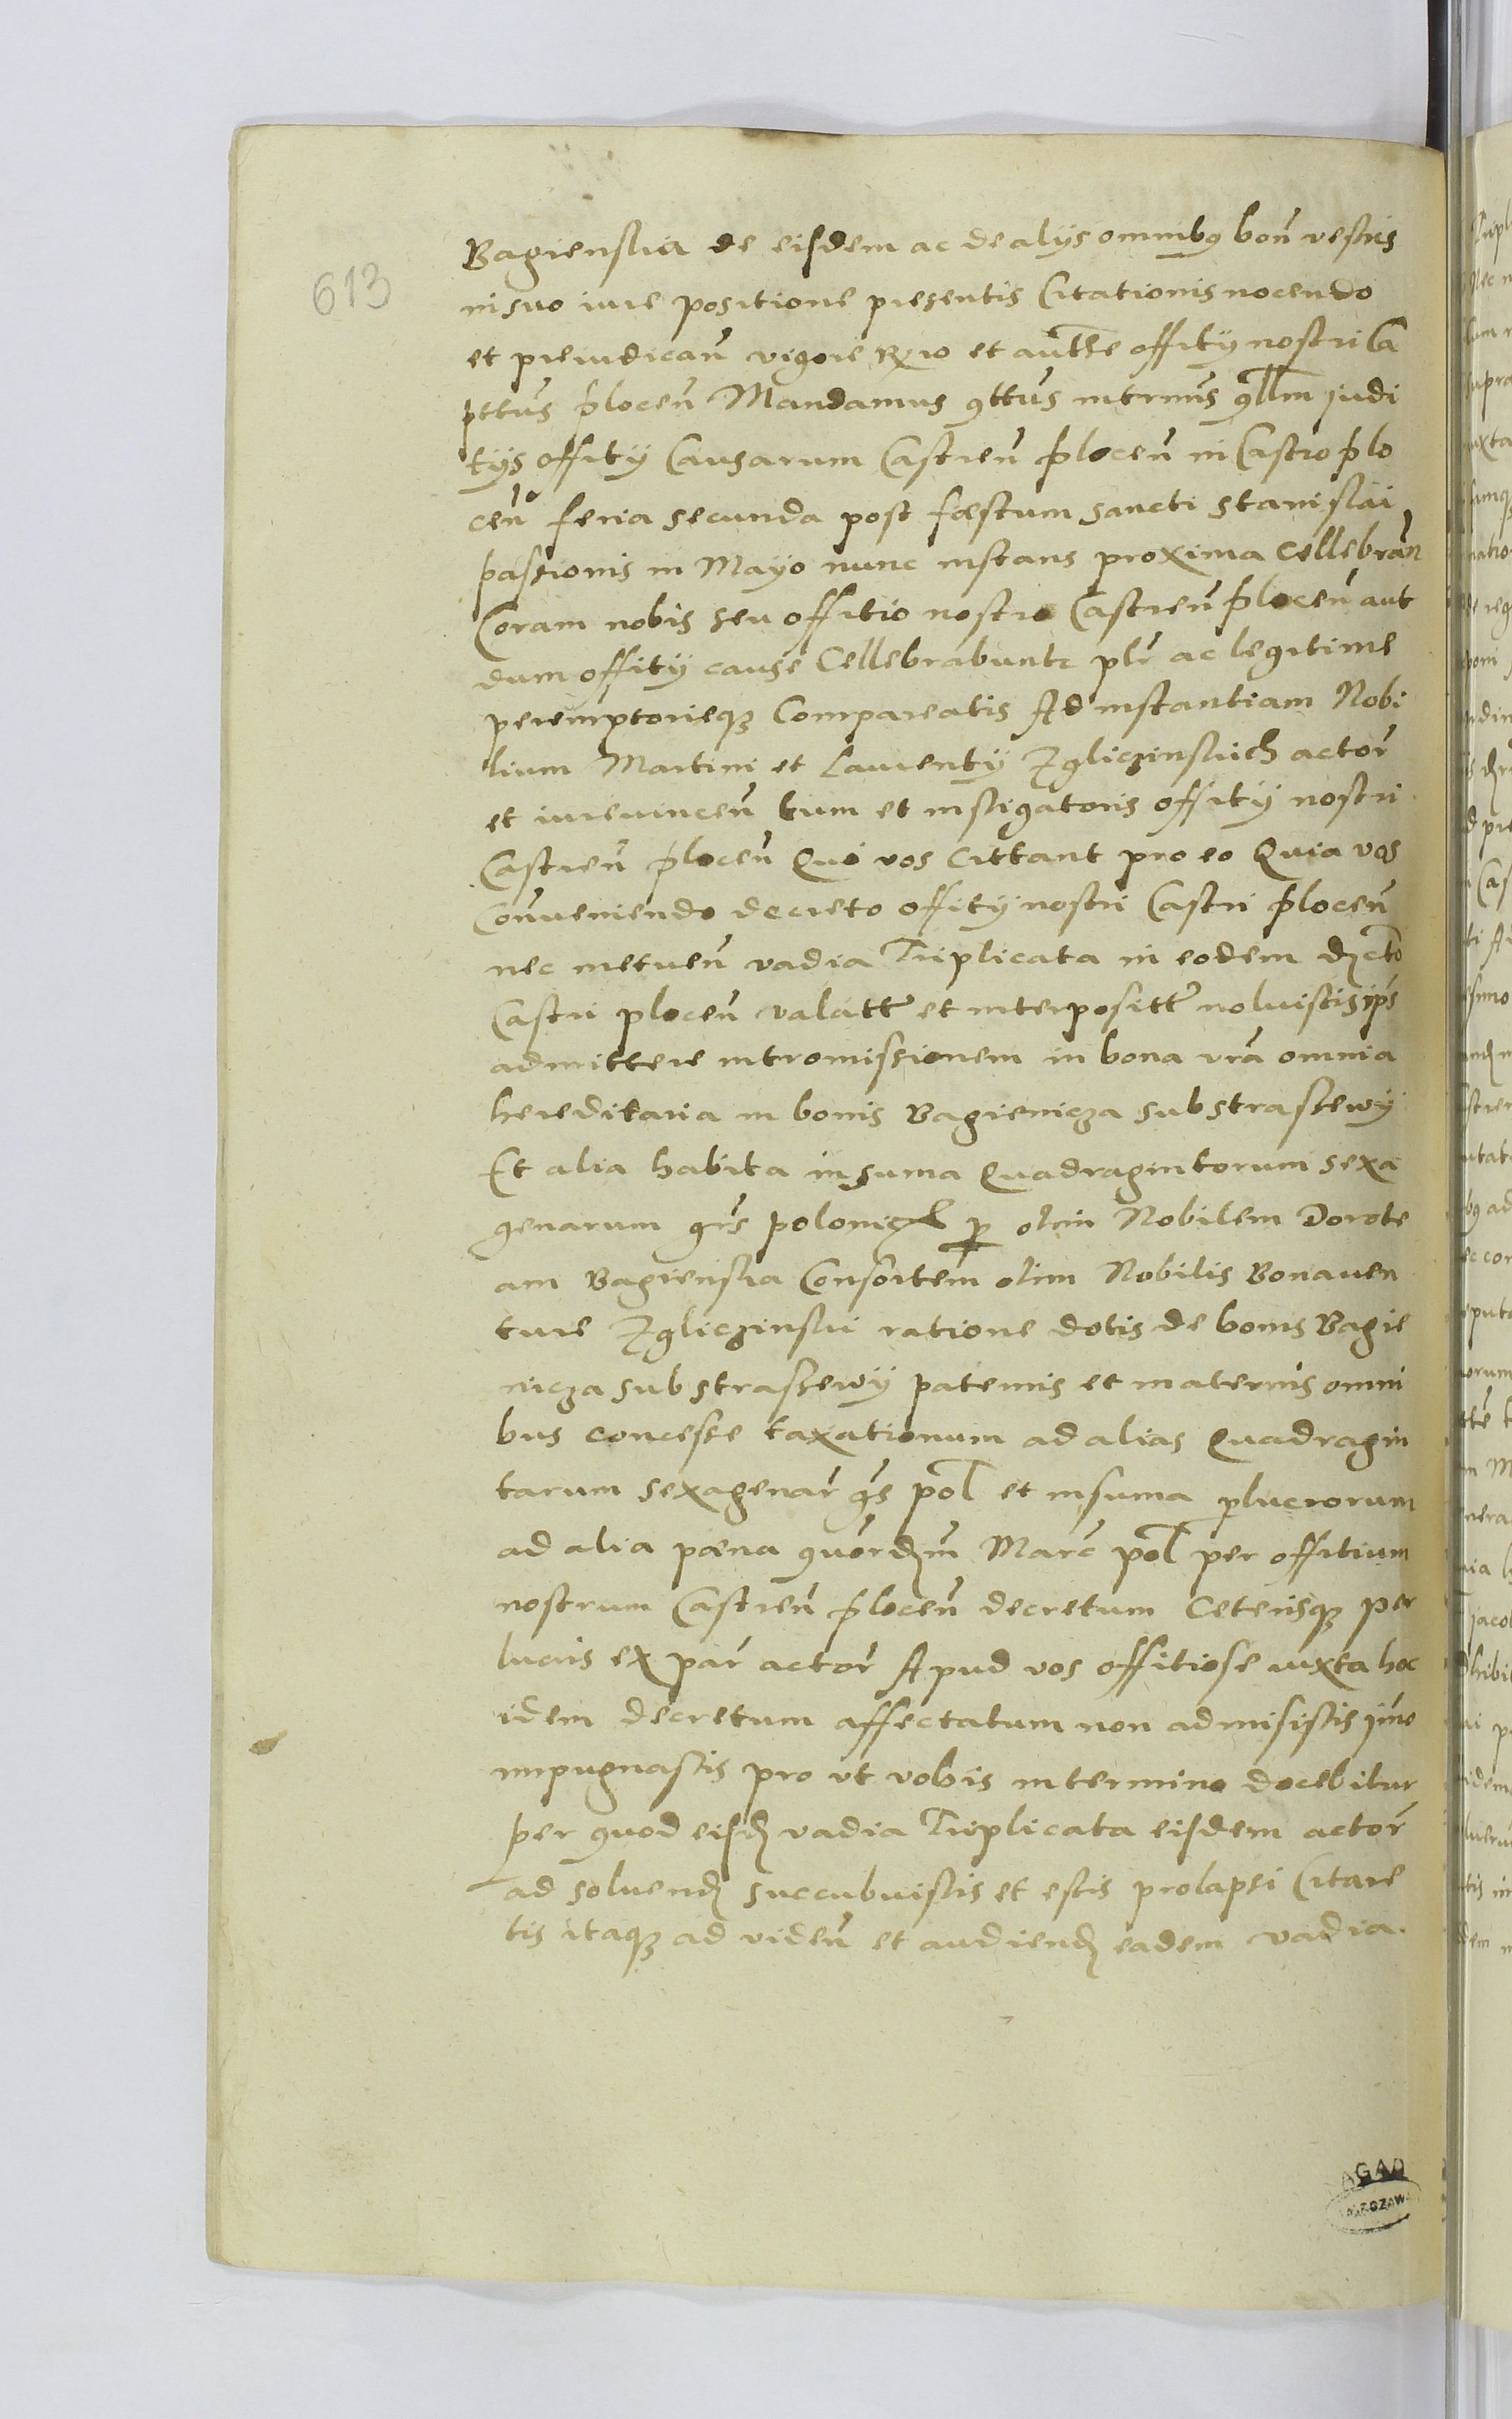 613
Bagienskia de eisdem ac de alijs omnibꝰ bon̄ vestris
in suo iure positione presentis Citationis nocendo
et preiudican̄ vigore et authe offitij nostri Ca
pttus plocen̄ Mandamus judi
tijs offitij Causarum Castren̄ plocen̄ in Castro plo
cen̄ feria secunda post festum sancti Stanislai
passionis in Mayo nunc instans proxima Cellebran̄
Coram nobis seu offitio nostro Castren̄ plocen̄ aut
dum offitij cause Cellebrabuntr plr ac legitime
peremptorieqꝫ Compareatis Ad instantiam Nobi
lium Martini et Laurentij Zgliczinskich actor̄
et iurevincen̄ tum et instigatoris offitij nostri
Castren̄ plocen̄ Qui vos Cittant pro eo Quia vos
Conveniendo decreto offitij nostri Castri plocen̄
nec metuen̄ vadia Triplicata in eodem dicto
Castri plocen̄ valatt et interpositt noluistis ips
admittere intromissionem in bona vrā omnia
hereditaria in bonis Bagienicza substrascewij
Et alia habita in suma Quadragintorum sexa
genarum grs polonicl p olim Nobilem Dorote
am Bagienskia Consortem olim Nobilis Bonaven
ture Zgliczinski ratione dotis de bonis Bagie
nicza substrascewij paternis et maternis omni
bus concesse taxationum ad alias Quadragin
tarum sexagenar̄ grs pol et in suma plucrorum
ad alia pena quordm̄ Marc pol per offitium
nostrum Castren̄ plocen̄ decretum Ceterisqꝫ per
lucris ex par̄ actor̄ Apud vos offitiose iuxta hoc
idem decretum affectatum non admisistis jmo
impugnastis pro vt vobis in termino docebitur
per quod eisd vadia Triplicata eisdem actor̄
ad soluend succubuistis et estis prolapsi Citare
tis itaqꝫ ad viden̄ et audiend eadem vadia.
AGAD
WARSZAWA